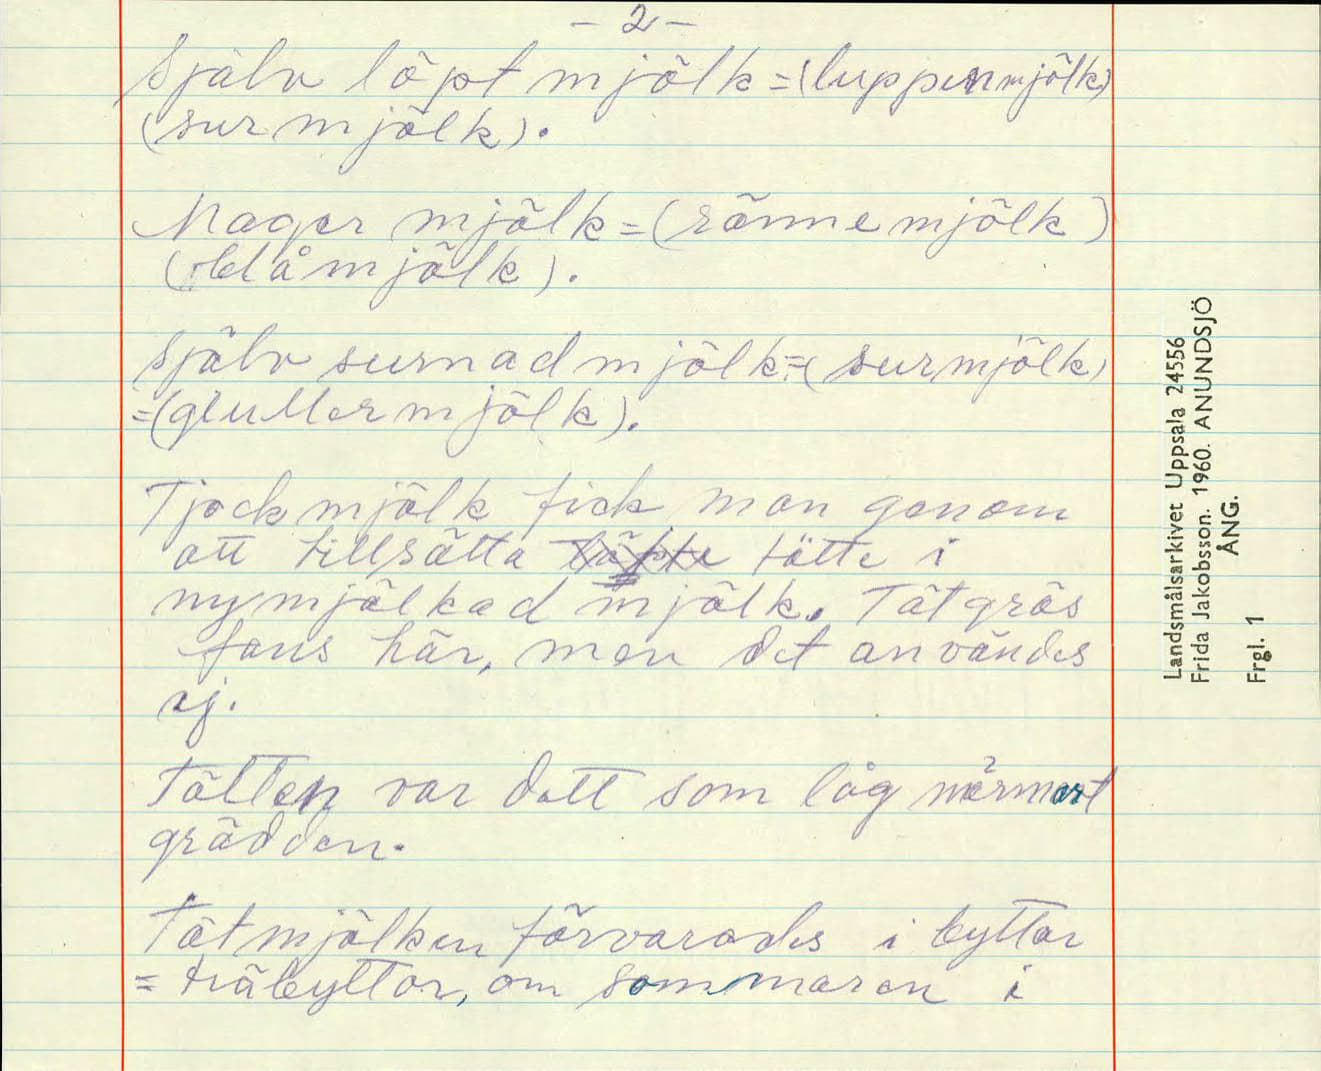 - 2 -
Själv löpt mjölk = (luppenmjölk)
(surmjölk).
Mager mjölk = (rännemjölk)
(blåmjölk).
Själv surnad mjölk = (surmjölk)
= (glullermjölk).
Tjock mjölk fick man genom
att tillsätta löpte tätte i
nymjölkad mjölk. Tätgräs
fans här, men det användes
ej.
Tätten var dett som låg närmast
grädden.
Tätmjölken förvarades i byttor
= träbyttor, om sommaren i
Landsmålsarkivet Uppsala 24556
Frida Jakobsson. 1960. ANUNDSJÖ
ÅNG.
Frgl. 1